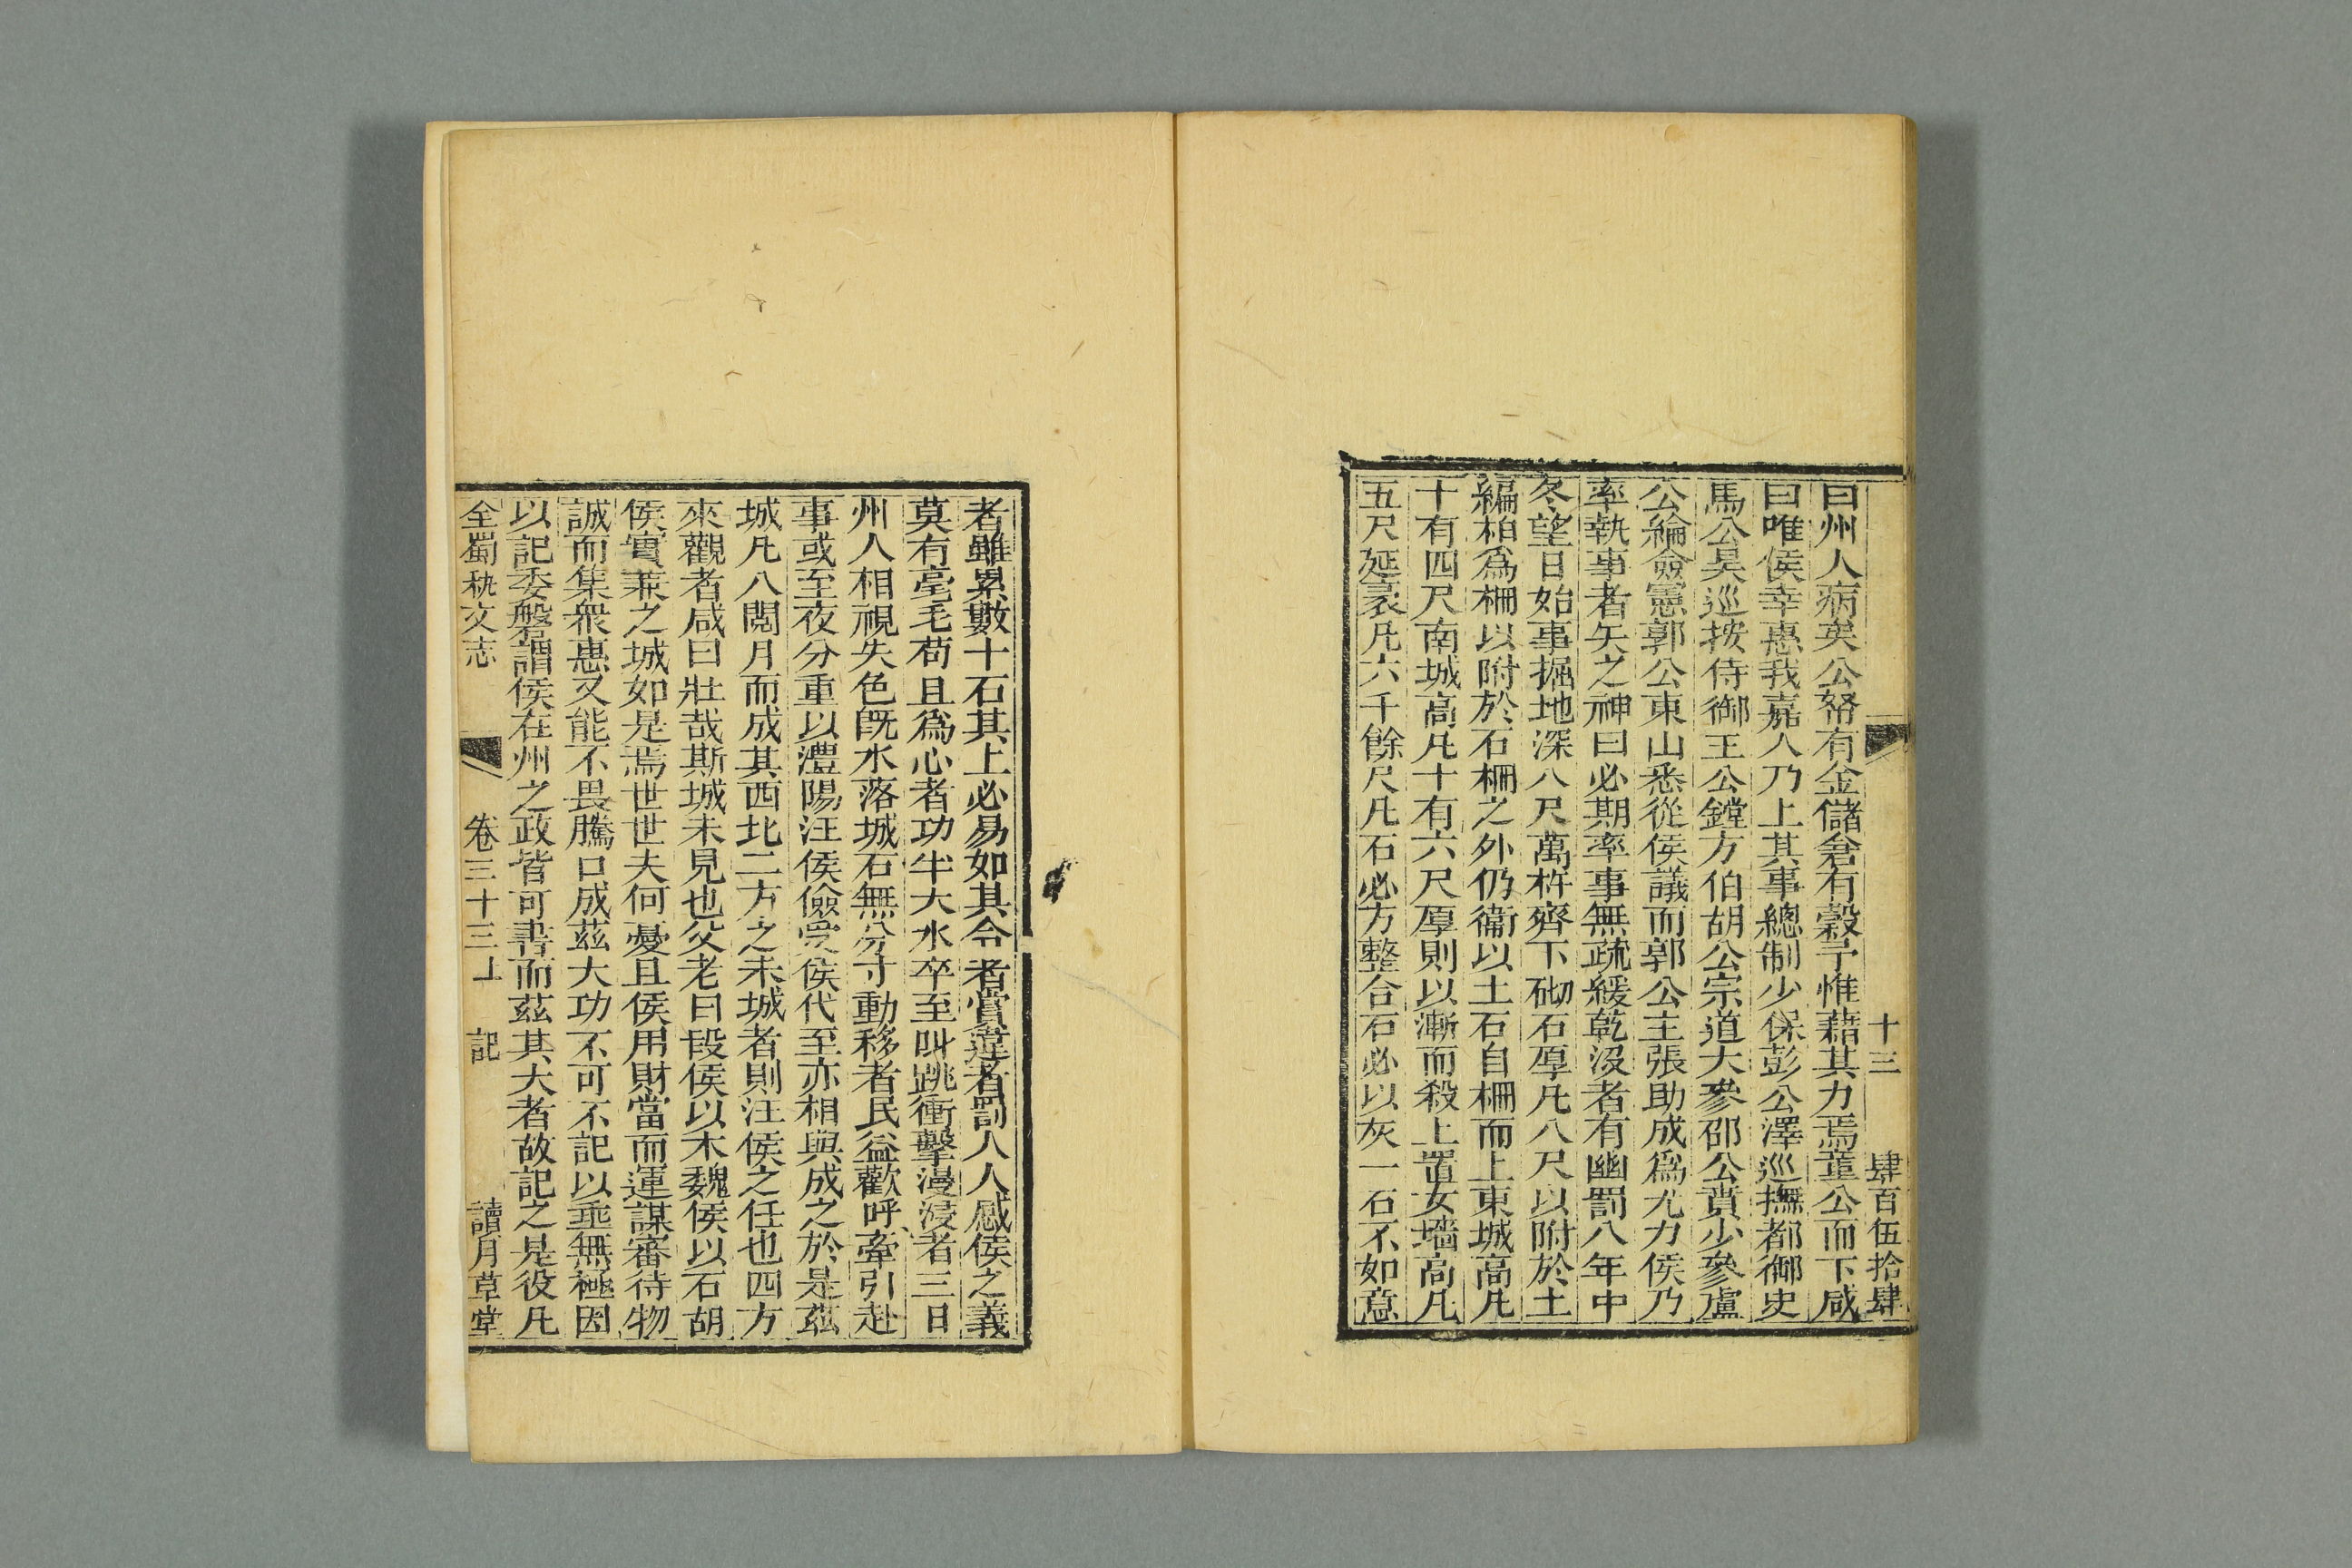 十三　肆百伍拾肆
曰州人病矣公帑有金儲倉有穀予惟藉其力焉董公而下咸
曰唯侯幸惠我嘉人乃上其事總制少保彭公澤巡撫都御史
馬公昊巡按侍御王公鏜方伯胡公宗道大參邵公蕡少參盧
公綸僉憲郭公東山悉從侯議而郭公主張助成爲尤力侯乃
率執事者矢之神曰必期率事無疏緩乾沒者有幽罰八年中
冬望日始事掘地深八尺萬杵齊下砌石厚凡八尺以附於土
編柏爲柵以附於石柵之外仍衞以土石自柵而上東城高凡
十有四尺南城高凡十有六尺厚則以漸而殺上置女墻高凡
五尺延袤凡六千餘尺凡石必方整合石必以灰一石不如意
者雖累數十石其上必易如其令者賞違者罰人人感侯之義
莫有毫毛苟且爲心者功半大水卒至叫跳衝擊漫浸者三日
州人相視失色旣水落城石無分寸動移者民益歡呼牽引赴
事或至夜分重以澧陽汪侯儉受侯代至亦相與成之於是茲
城凡八閱月而成其西北二方之未城者則汪侯之任也四方
來觀者咸曰壯哉斯城未見也父老曰段侯以木魏侯以石胡
侯實兼之城如是焉世世夫何憂且侯用財當而運謀審待物
誠而集衆惠又能不畏騰口成茲大功不可不記以垂無極因
以記委磐謂侯在州之政皆可書而茲其大者故記之是役凡
全蜀秇文志　卷三十三上　記　讀月草堂